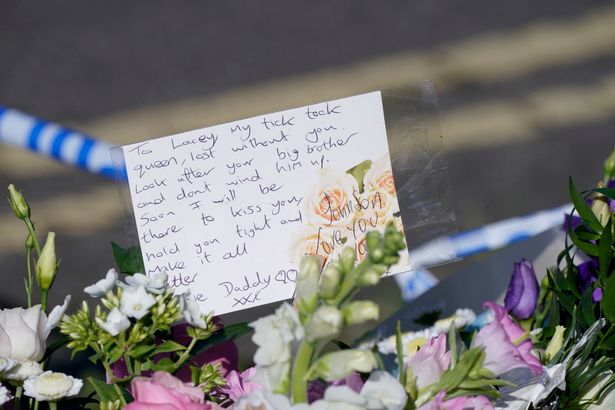 To Lacey My tick tock
queen, lost without you.
Look after your big brother
and dont wind him up.
Soon I will be
there to kiss you
hold you tight and
Make it all
Daddy
xxx
Love You